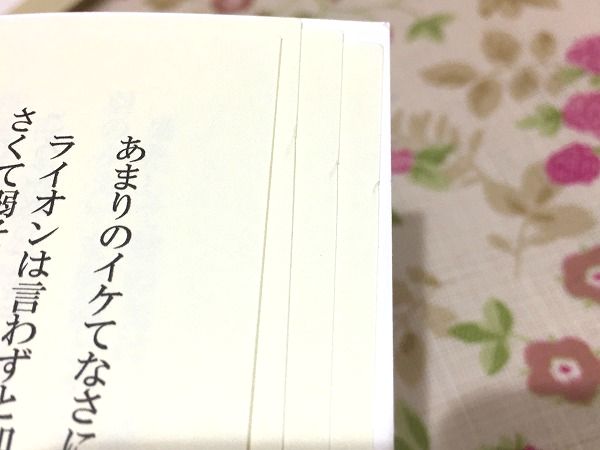 あまりのイケてなさに
ライオンは言わずと
さくて弱